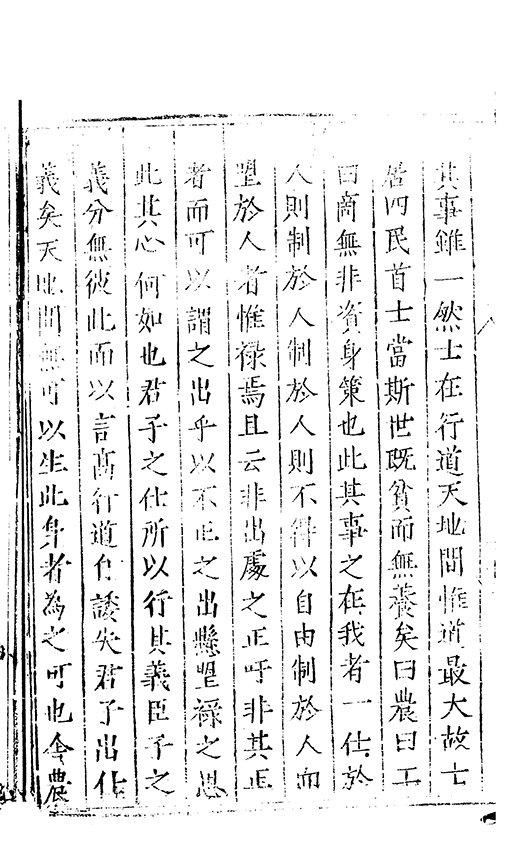 其事雖一然士在行道天地間惟道最大故士
居四民首士當斯世既貧而無養矣曰農曰工
曰商無非資身策也此其事之在我者一仕於
人則制於人制於人則不得以自由制於人而
望於人者惟祿焉且云非出處之正吁非其正
者而可以謂之出乎以不正之出懸望祿之思
此其心何如也君子之仕所以行其義臣子之
義分無彼此而以言高行道仕諉失君子出仕
義矣天地間無可以生此身者為之可也舍農